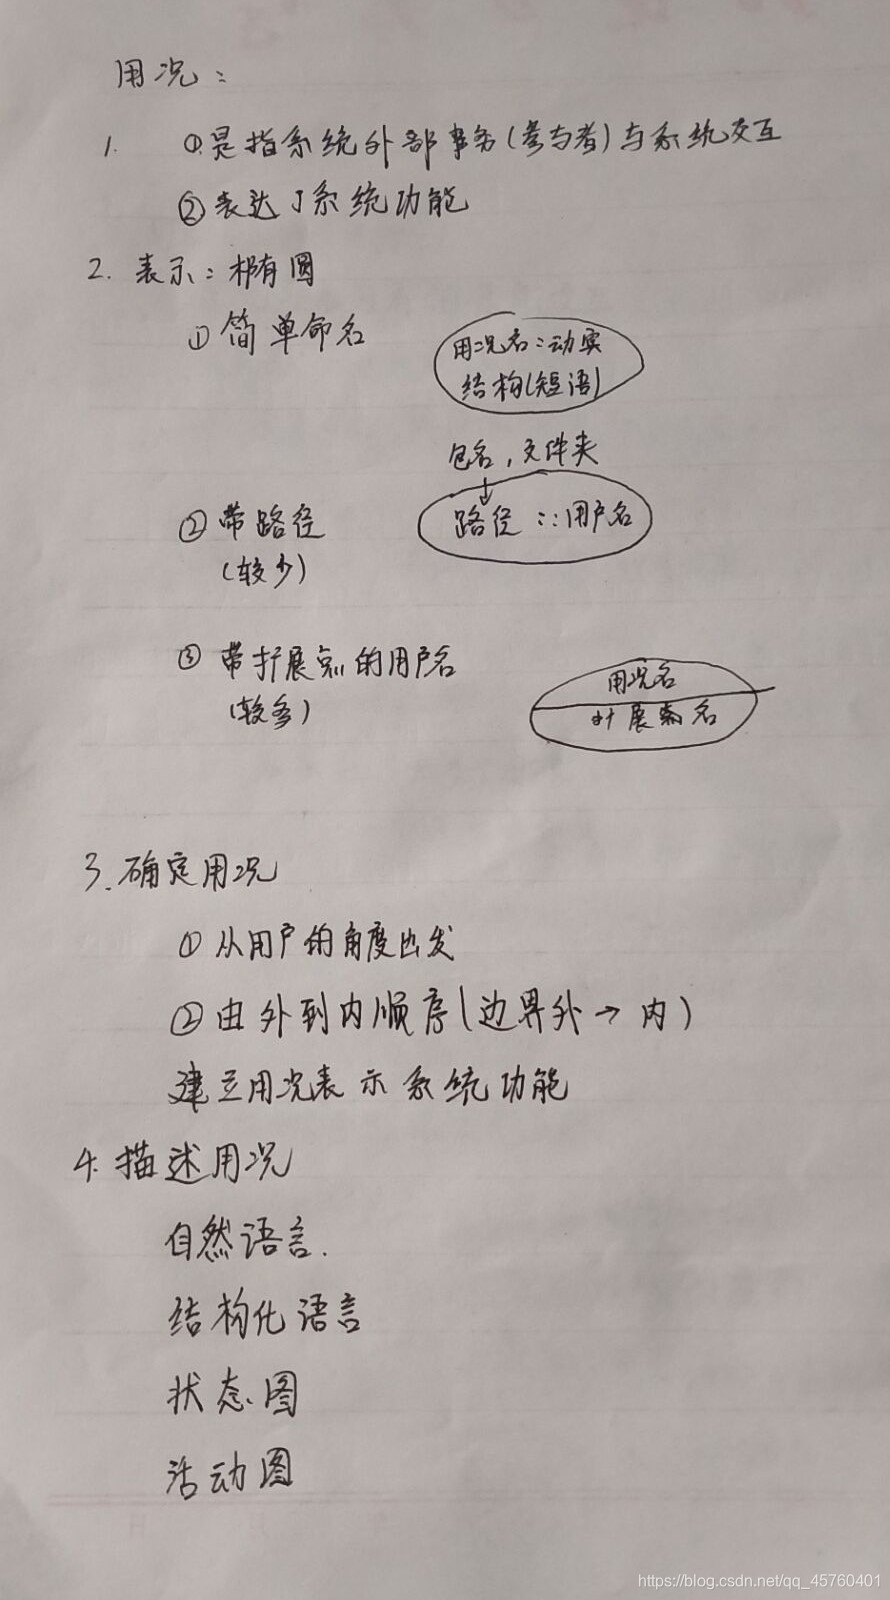 用况：
1. ①是指系统外部事务(参与者)与系统交互
②表达了系统功能
2. 表示：椭圆
①简单命名
用况名：动宾
结构(短语)
包名，文件夹
↓
②带路径
(较少)
路径：：用户名
③带扩展点的用户名
(较多)
用况名
扩展点名
3.确定用况
①从用户的角度出发
②由外到内顺序(边界外→内)
建立用况表示系统功能
4.描述用况
自然语言.
结构化语言
状态图
活动图
https://blog.csdn.net/qq_45760401